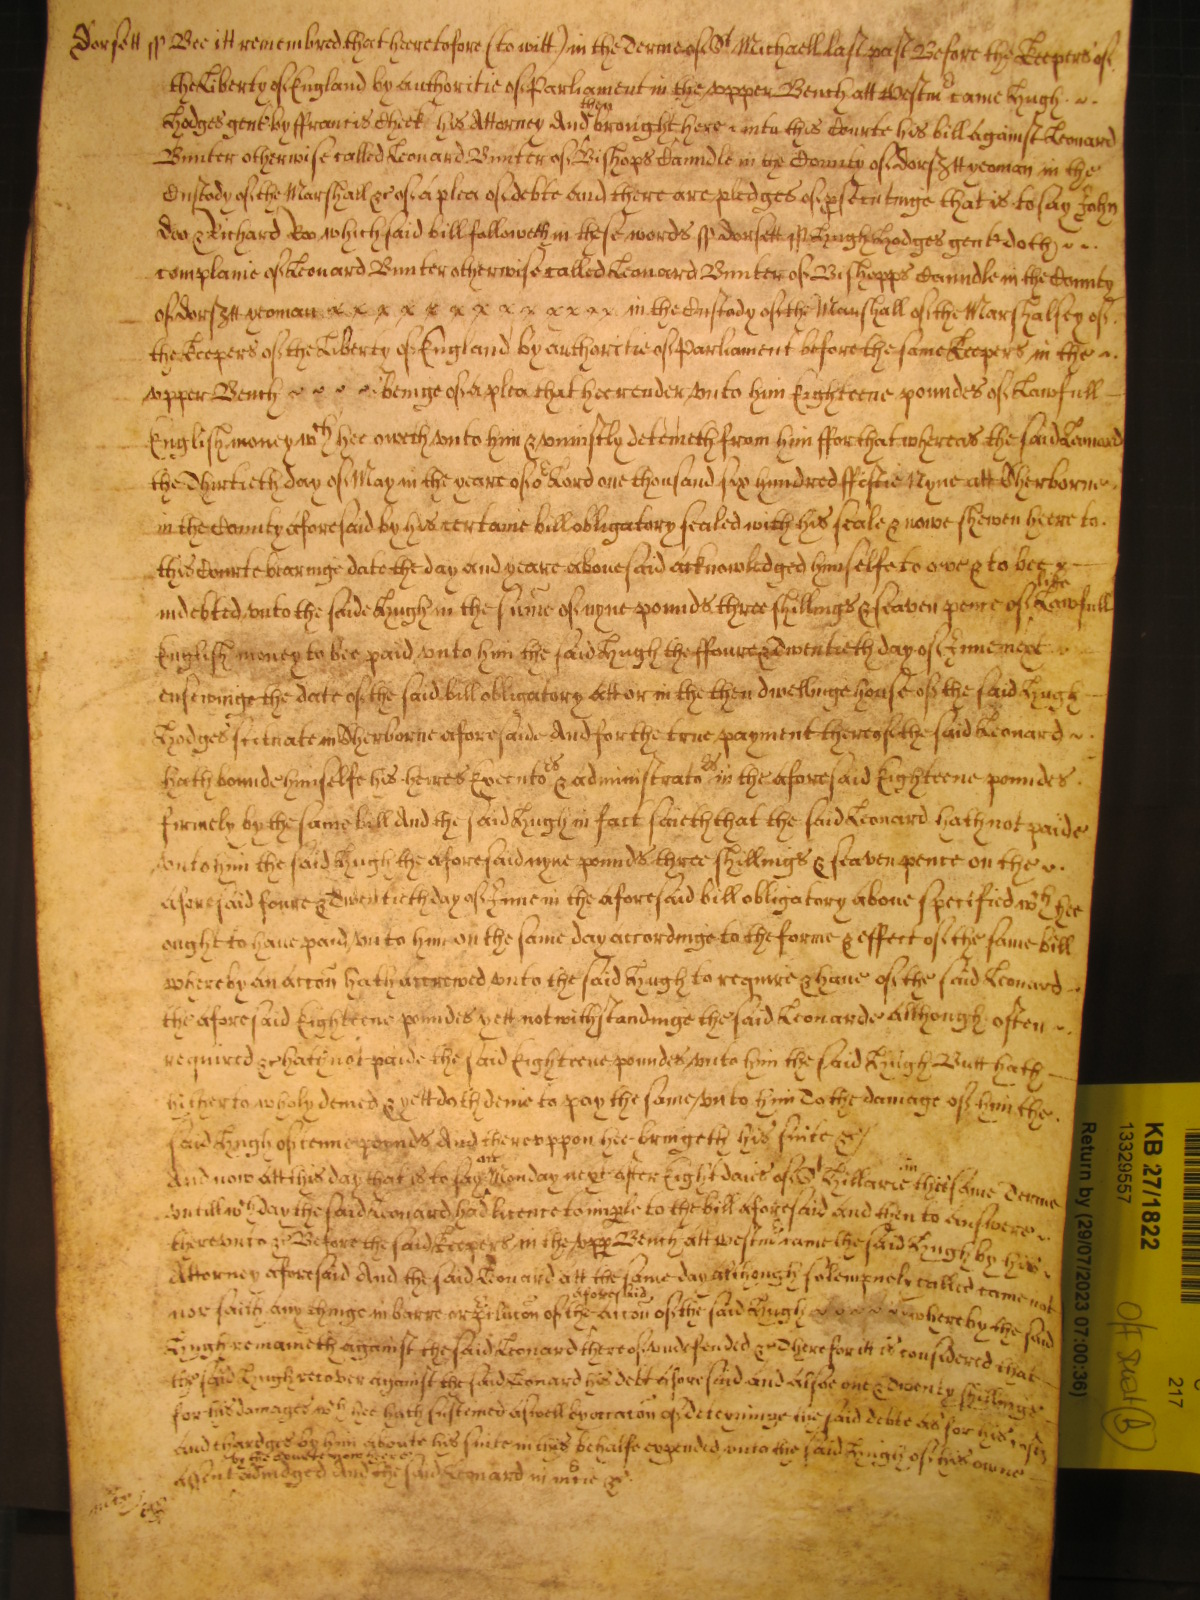 Dorsett ss Bee itt remembred that heeretofore (to witt) in the Terme of St Michaell last past Before the Keepers of
the Liberty of England by authoritie of Parliament in the upper Bench att Westmr came Hugh
Hodges gent by ffrancis Cheeke his Attorney And then brought heere into this Courte his bill against Leonard
Bunter otherwise called Leonard Bunter of Bishops Caundle in the County of Dorsett yeoman in the
Custody of the Marshall &c of a plea of debte And there are pledges of psecutinge that is to say John
Doo & Richard Roo which said bill followeth in these words ss Dorsett ss Hugh Hodges gent doth
complaine of Leonard Bunter otherwise called Leonard Bunter of Bishopps Caundle in the County
of Dorsett yeoman x x x x x x x x x x x x in the Custody of the Marshall of the Marshalsey of
the Keepers of the Liberty of England by authoritie of Parliament before the same Keepers in the
upper Bench beinge of a plea that hee render unto him Eighteene poundes of Lawfull
English money wch hee oweth unto him & uniustly deteineth from him ffor that whereas the said Leonard
the Thirtieth day of May in the yeare of or Lord one thousand six hundred ffiftie Nyne att Sherborne
in the County aforesaid by his certaine bill obligatory sealed with his seale & nowe shewen heere to
this Courte bearinge date the day and yeare abovesaid acknowledged himselfe to owe & to bee
indebted unto the saide Hugh in the sume of nyne pounds three shillings & seaven pence of like Lawfull
English money to bee paid unto him the said Hugh the ffoure & Twentieth day of June next
ensewinge the date of the said bill obligatory att or in the then dwellinge house of the said Hugh
Hodges scituate in Sherborne aforesaide And for the true payment thereof the said Leonard
hath bounde himselfe his heires Executors & administrators in the aforesaid Eighteene poundes
firmely by the same bill And the said Hugh in fact saieth that the said Leonard hath not paide
unto him the said Hugh the aforesaid nyne pounds three shillings & seaven pence on the
aforesaid foure & Twentieth day of June in the aforesaid bill obligatory above specified wch hee
ought to have paid unto him on the same day accordinge to the forme & effect of the same bill
whereby an accon hath accrewed unto the said Hugh to require & have of the said Leonard
the aforesaid Eighteene poundes yett notwithstandinge the said Leonarde Although often
required &c hath not paide the said Eighteene poundes unto him the said Hugh Butt hath
hitherto wholy denied & yett doth denie to pay the same unto him To the damage of him the
said Hugh of tenne pounds And thereuppon hee bringeth his suite &c
And now att this day that is to say on Monday next after Eight daies of St Hillarie in this same Terme
untill wch day the said Leonard had licence to imple to the bill aforesaid and then to answere
thereunto &c Before the said Keepers in the upp Bench att Westmr came the said Hugh by his
Attorney aforesaid And the said Leonard att the same day although solempnely called came not
nor saith any thinge in barre or of the aforesaid accon of the said Hugh whereby the said
Hugh remaineth against the said Leonard thereof undefended &c Therefor itt is considered that
the said Hugh recover against the said Leonard his debt aforesaid and alsoe one & Twenty shillings
for his damages wch hee hath susteined aswell by occacon of deteyninge the said debte as for his costs
and chardges by him aboute his suite in this behalfe expended unto the said Hugh of his owne
assent by the Courte now heere adiudged And the said Leonard in mcie &c
KB 27/1822
13329557
Return by (29/07/2023 07:00:36)
217